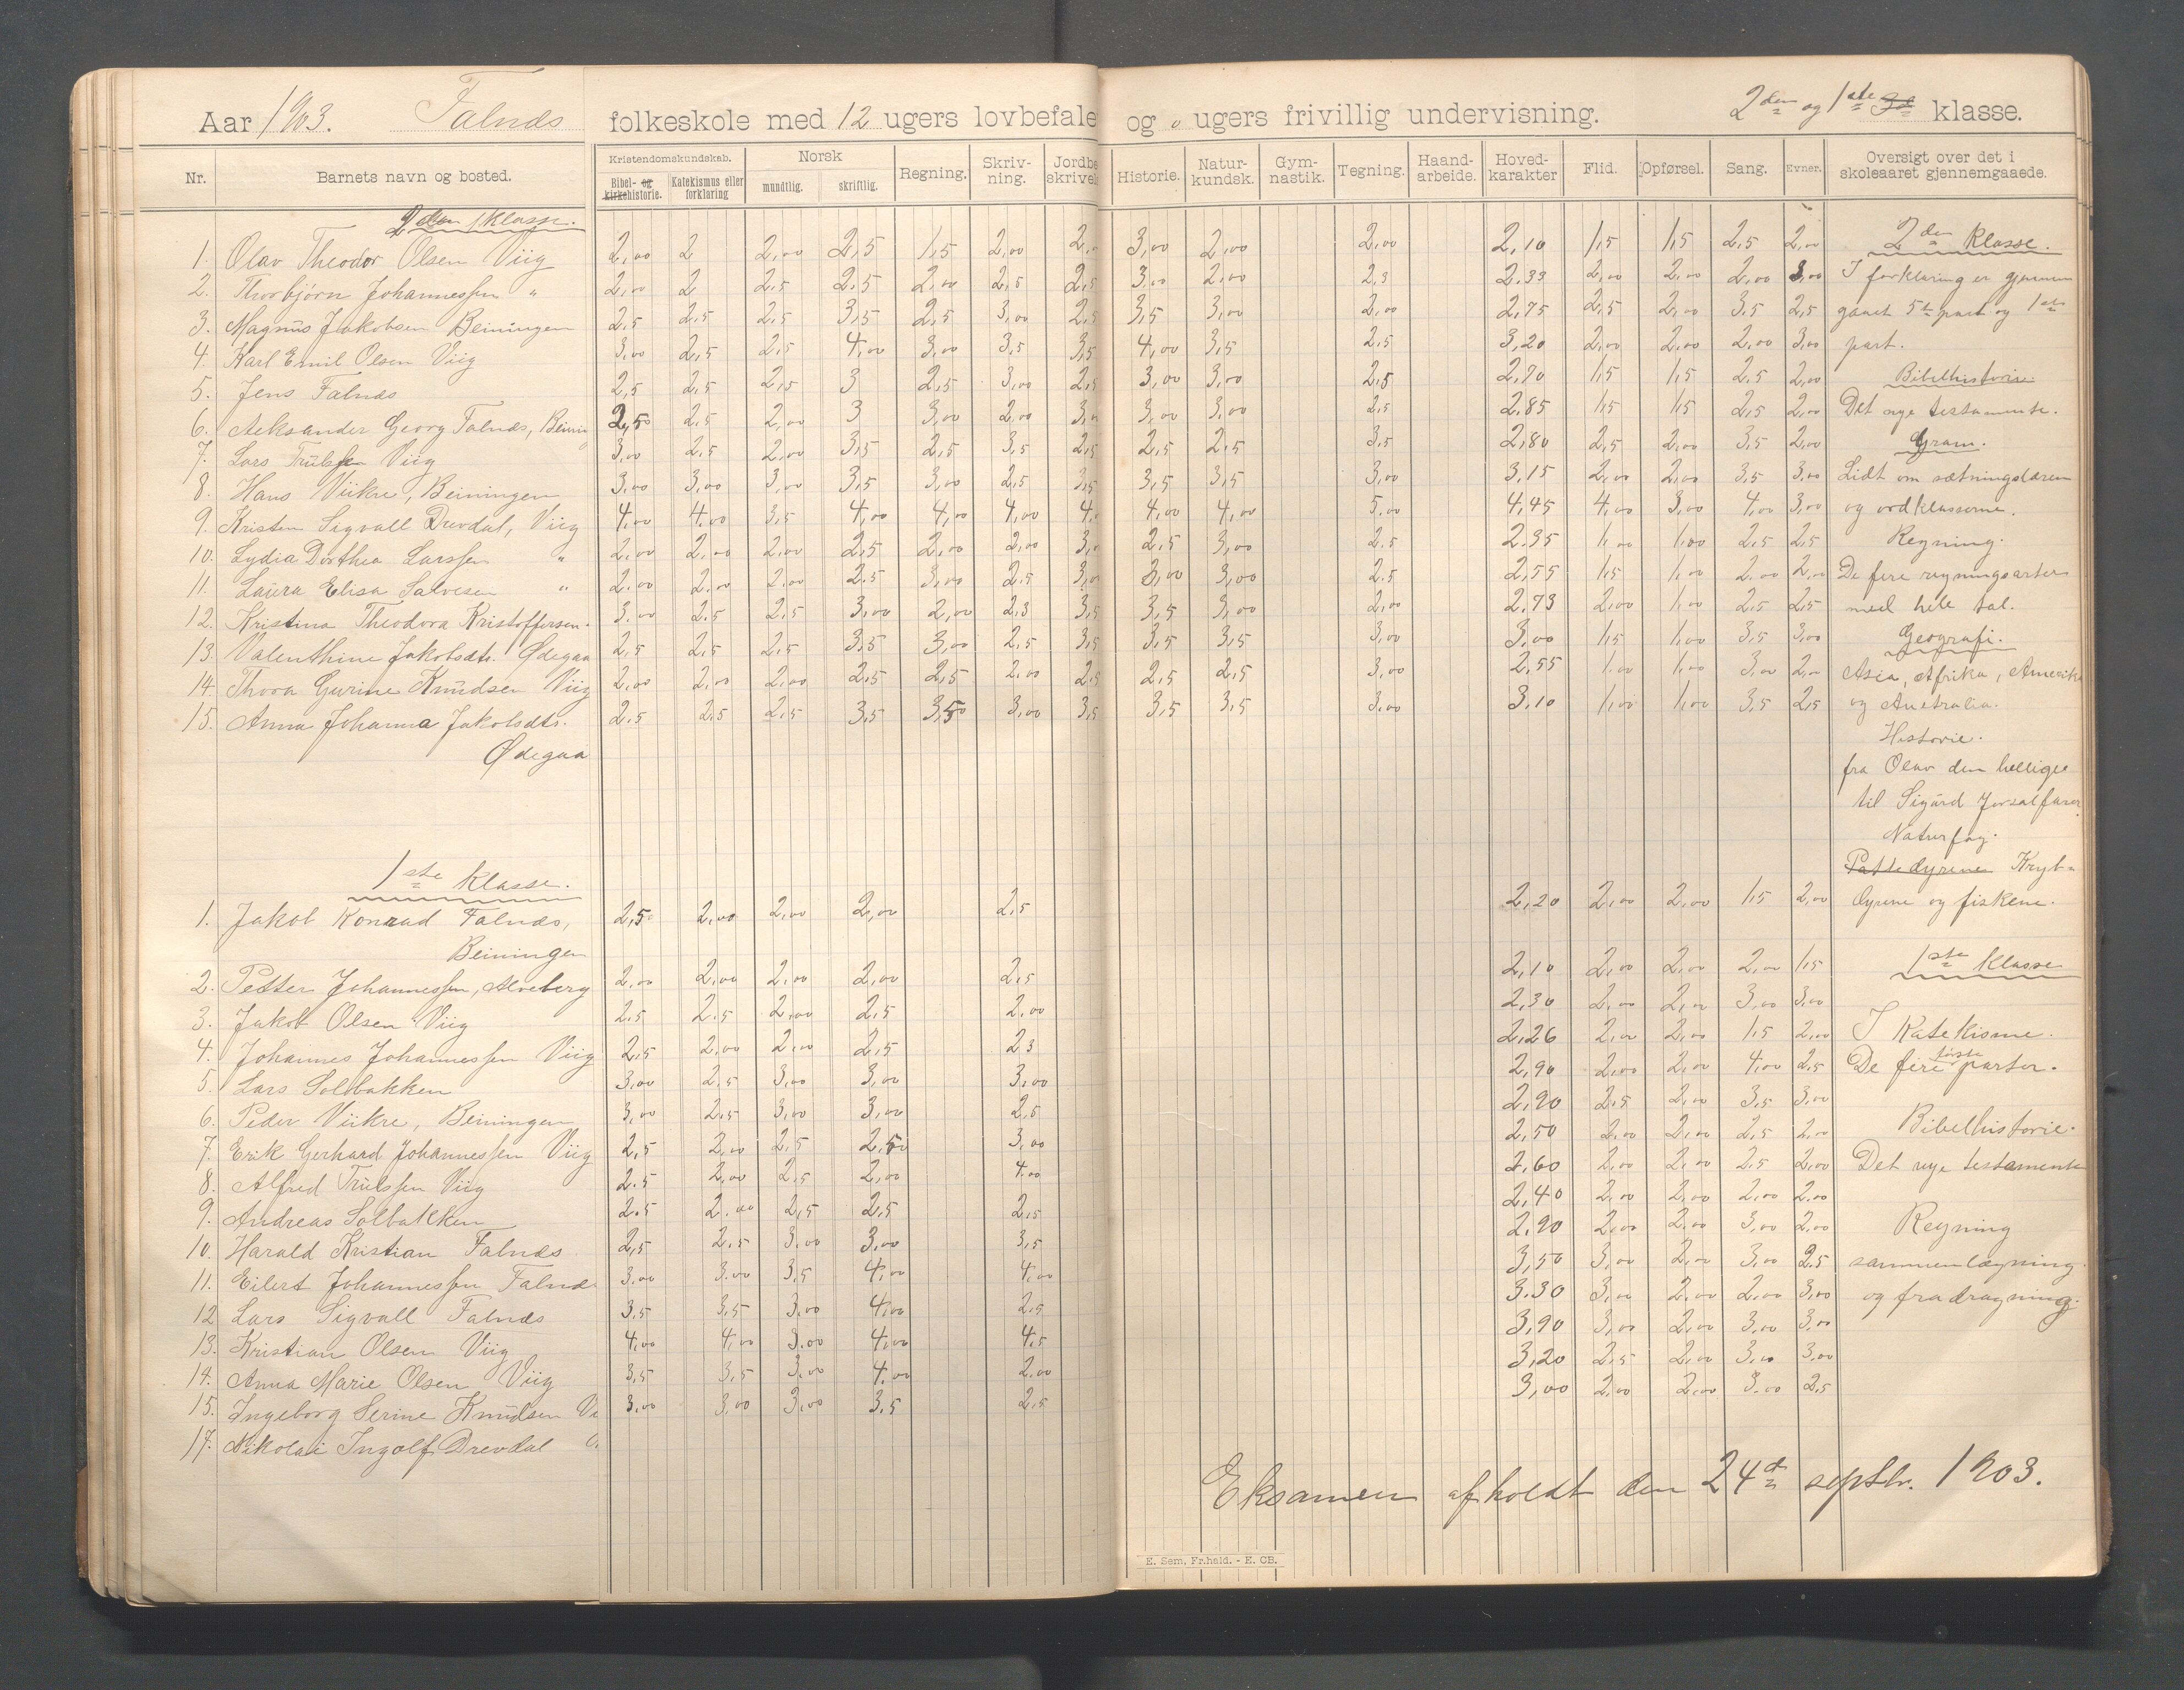 Aar 1903. Falnæs folkeskole med 12 ugers lovbefale og 0 ugers frivillig undervisning. 2den og 1ste 3d klasse.
Nr. Barnets navn og bosted. Kristendomskundskab. Bibel- og kirkehistorie. Katekismus eller forklaring Norsk mundtlig. skriftlig. Regning. Skriv-ning. Jordbe skrivels Historie. Natur-kundsk. Gym-nastik. Tegning. Haand-arbeide. Hoved-karakter Flid. Opførsel. Sang. Evner. Oversigt over det i skoleaaret gjennemgaaede.
2den klasse.
1. Olav Theodor Olsen Viig 2,00 2 2,00 2,5 1,5 2,00 2,0 3,00 2,00 2,00 2,10 1,5 1,5 2,5 2,00 2den klasse.
2. Thorbjørn Johannessen " 2,00 2 2,5 2,5 2,00 2,5 2,5 3,00 2,00 2,3 2.33 2,00 2,00 2,00 3,00 I forklaring er gjennem
3. Magnus Jakobsen Beiningen 2,5 2,5 2,5 3,5 2,5 3,00 2,5 3,5 3,00 2,00 2,75 2,5 2,00 3,5 2,5 gaaet 5te part og 1ste
4. Karl Emil Olsen Viig 3,00 2,5 2,5 4,00 3,00 3,5 3,5 4,00 3,5 2,5 3,20 2,00 2,00 2,00 3,00 part.
5. Jens Falnæs 2,5 2,5 2,5 3 2,5 3,00 2,5 3,00 3,00 2,5 2,70 1,5 1,5 2,5 2,00 Bibelhistorie.
6. Aeksander Georg Falnæs, Beinin 2,5 2,5 2,00 3 3,00 2,00 3,0 3,00 3,00 2,5 2,85 1,5 1,5 2,5 2,00 Det nye testamente.
7. Lars Trulssen Viig 3,00 2,5 2,00 3,5 2,5 3,5 2,5 2,5 2,5 3,5 2,80 2,5 2,00 3,5 2,00 Gram.
8. Hans Viikre, Beiningen 3,00 3,00 3,00 3,5 3,00 2,5 3,5 3,5 3,5 3,00 3,15 2,00 2,00 3,5 3,00 Lidt om sætningslæren
9. Kristen Sigvall Drevdal, Viig 4,00 4,00 3,5 4,00 4,00 4,00 4,0 4,00 4,00 5,00 4,45 4,00 3,00 4,00 3,00 og ordklasserne.
10. Lydia Dorthea Larssen " 2,00 2,00 2,00 2,5 2,00 2,00 3,0 2,5 3,00 2,5 2.35 1,00 1,00 2,5 2,5 Regning.
11. Laura Elisa Salvesen " 2,00 2,00 2,00 2,5 3,00 2,5 3,0 3,00 3,00 2,5 2,55 1,5 1,00 2,00 2,00 De fire regningsarter
12. Kristina Theodora Kristoffersen. 3,00 2,5 2,5 3,00 2,00 2,3 3,5 3,5 3,00 2,00 2,73 2,00 1,00 2,5 2,5 med hele tal.
13. Valenthine Jakobsdtr. Ødegaa 2,5 2,5 2,5 3,5 3,00 2,5 3,5 3,5 3,5 3,00 3,00 1,5 1,00 3,5 3,00 Geografi.
14. Thora Gurine Knudsen Viig 2,00 2,00 2,00 2,5 2,5 2,00 2,5 2,5 2,5 3,00 2,55 1,00 1,00 3,00 2,00 Asia, Afrika, Amerika
15. Anna Johanna Jakobsdtr. 2,5 2,5 2,5 3,5 3,5 3,00 3,5 3,5 3,5 3,00 3,10 1,00 1,00 3,5 2,5 og Australia.
Ødegaa
Historie.
fra Olav den hellige
til Sigurd Jorsalfarer
Naturfag.
Pattedyrene Kryb-
1ste klasse.
1. Jakob Konrad Falnæs, 2,5 2,00 2,00 2,00 2,5 2,20 2,00 2,00 1,5 2,00 dyrene og fiskene.
Beiningen
1ste klasse
2. Petter Johannessen, Alveberg 2,00 2,00 2,00 2,00 2,5 2,10 2,00 2,00 2,00 1,5
3. Jakob Olsen Viig 2,5 2,5 2,00 2,5 2,00 2,30 2,00 2,00 3,00 3,00
4. Johannes Johannessen Viig 2,5 2,00 2,00 2,5 2,3 2,26 2,00 2,00 1,5 2,00 I Katekisme.
5. Lars Solbakken 3,00 2,5 3,00 3,00 3,00 2,90 2,00 2,00 4,00 2,5 De fire første parter.
6. Peder Viikre, Beiningen 3,00 2,5 3,00 3,00 2,5 2,90 2,5 2,00 3,5 3,00
7. Erik Gerhard Johannessen Viig 2,5 2,00 2,5 2,5 3,00 2,50 2,00 2,00 2,5 2,00 Bibelhistorie.
8. Alfred Trulssen Viig 2,5 2,00 2,5 2,00 4,00 2,60 2,00 2,00 2,5 2,00 Det nye testamente
9. Andreas Solbakken 2,5 2,00 2,5 2,5 2,5 2,40 2,00 2,00 2,00 2,00
10. Harald Kristian Falnæs 2,5 2,5 3,00 3,00 3,5 2,90 2,00 2,00 3,00 2,00 Regning
11. Eilert Johannessen Falnæs 3,00 3,00 3,5 4,00 4,00 3,50 3,00 2,00 3,00 2,5 sammenlægning
12 Lars Sigvall Falnæs 3,5 3,5 3,00 4,00 2,5 3.30 3,00 2,00 2,00 3,00 og fradragning.
13. Kristian Olsen Viig 4,00 4,00 3,00 4,00 4,5 3,90 3,00 2,00 3,00 3,00
14. Anna Marie Olsen Viig 3,5 3,5 3,00 4,00 2,00 3,20 2,5 2,00 3,00 3,00
15. Ingeborg Serine Knudsen Vi 3,00 3,00 3,00 3,5 2,5 3,00 2,00 2,00 3,00 2,5
17. Nikolai Ingolf Drevdal
Eksamen afholdt den 24de septbr. 1903.
E. Sem, Fr.hald. - E. CB.